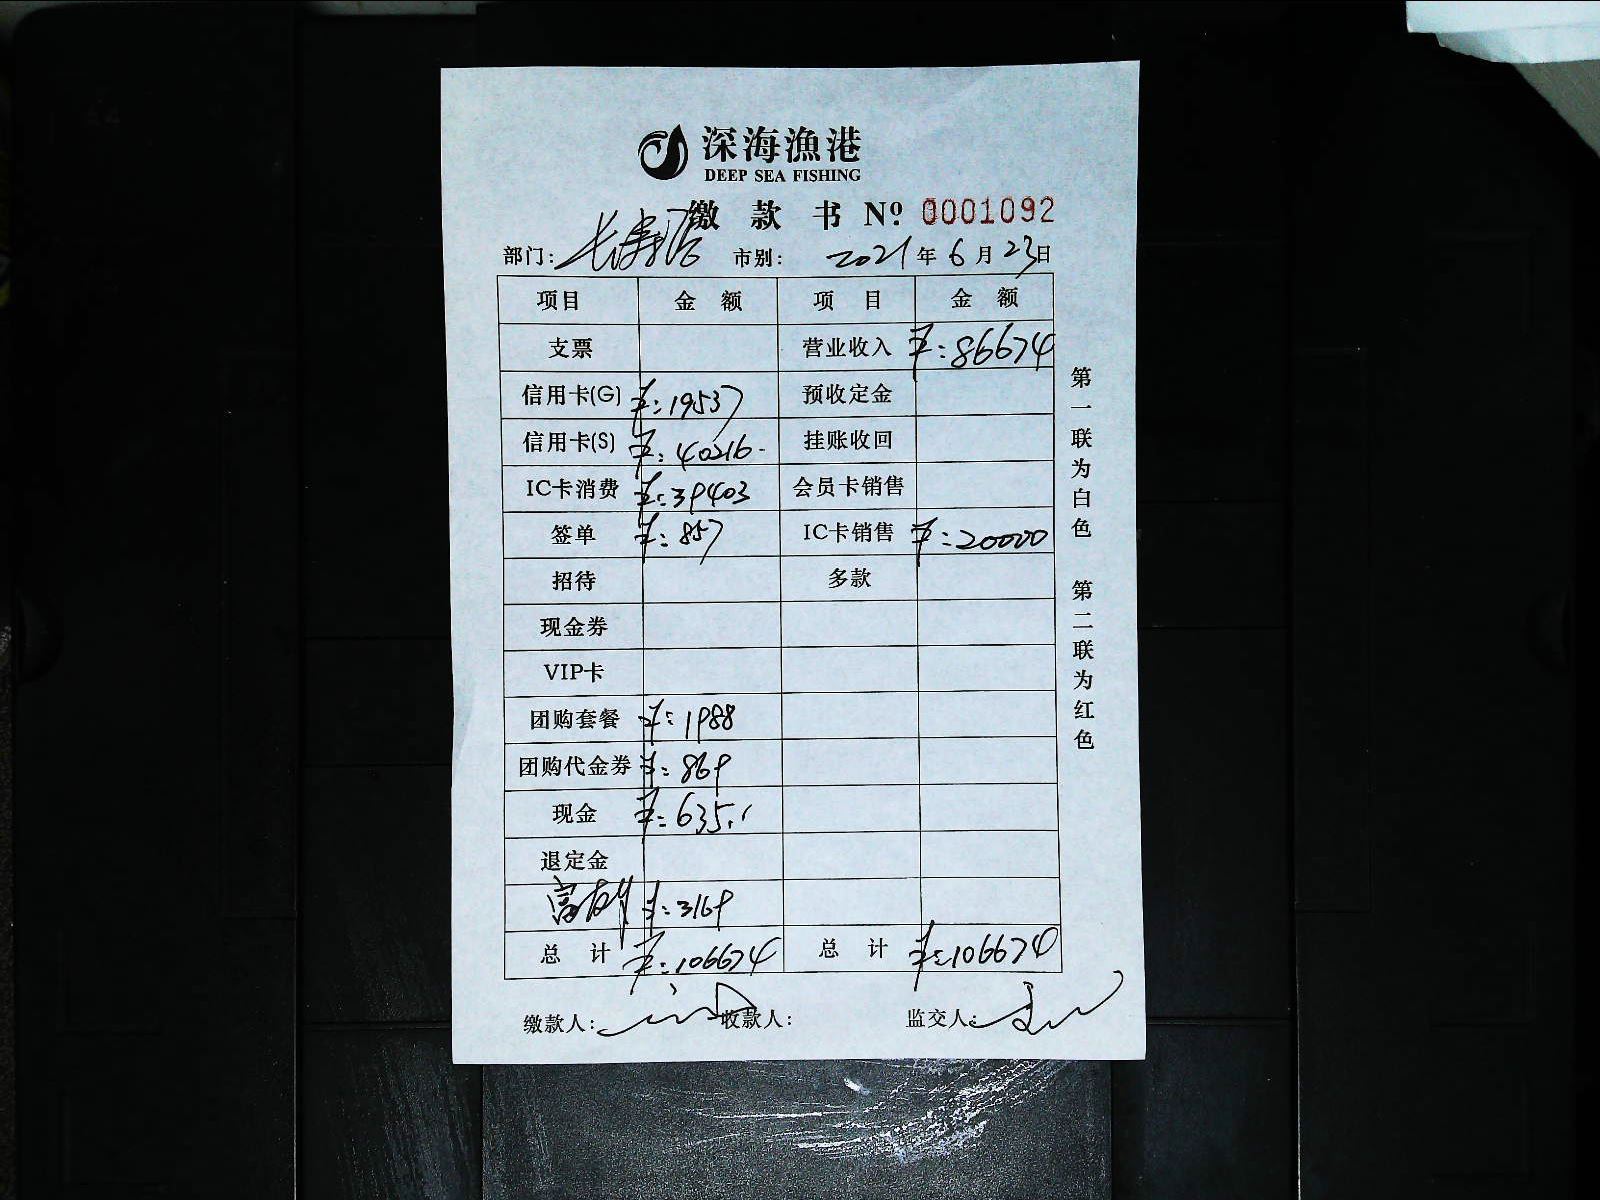 深海漁港
DEEP SEA FISHING
缴款书 Nº 0001092
部门: 长寿路店 市别: 2021年6月23日
项目 金额 项目 金额
支票 营业收入 ¥:86674
信用卡(G) ¥:19537 预收定金
信用卡(S) ¥:40216- 挂账收回
IC卡消费 ¥:39403 会员卡销售
签单 ¥:857 IC卡销售 ¥:20000
招待 多款
现金券
VIP卡
团购套餐 ¥:1988
团购代金券 ¥:869
现金 ¥:635.
退定金
¥:3169
总计 ¥:106674 总计 ¥:106674
缴款人: 收款人: 监交人:
第一联为白色 第二联为红色